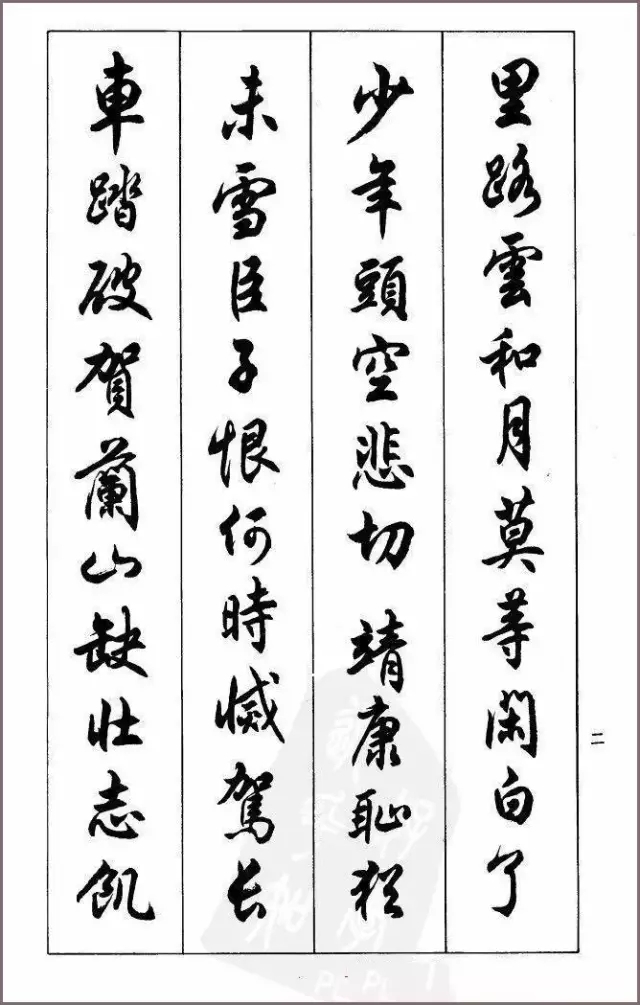 里路雲和月莫等閑白了
少年頭空悲切靖康恥猶
未雪臣子恨何時憾駕长
車踏破賀蘭山缺壯志飢
二